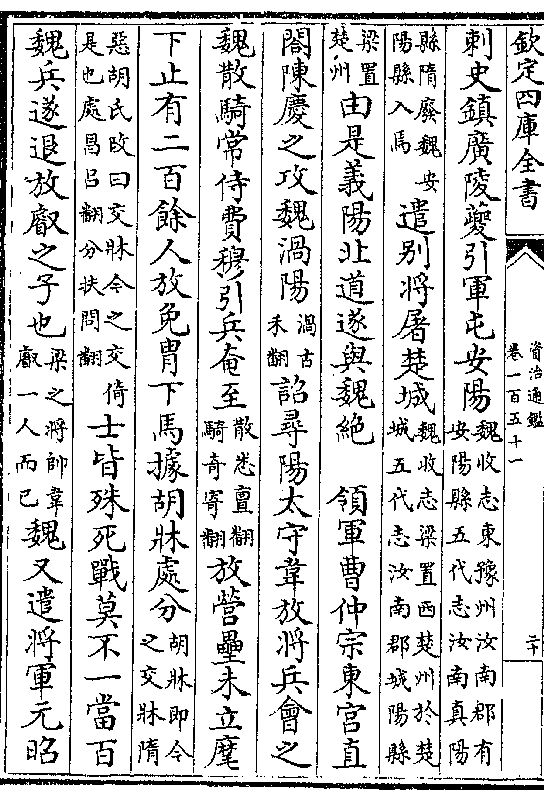 欽定四庫全書
資治通鑑
卷一百五十一
二十
刺史鎮廣陵夔引軍屯安陽魏收志東豫州汝南郡有安陽縣五代志汝南真陽
縣隋廢魏安陽縣入焉遣别將屠楚城魏收志梁置西楚州於楚城五代志汝南郡城陽縣
梁置楚州由是義陽北道遂與魏絶　領軍曹仲宗東宮直
閤陳慶之攻魏渦陽渦古禾翻詔尋陽太守韋放將兵會之
魏散騎常侍費穆引兵奄至散悉亶翻騎奇寄翻放營壘未立麾
下止有二百餘人放免胄下馬據胡牀處分胡牀即今之交牀隋
惡胡氏改曰交牀今之交倚是也處昌呂翻分扶問翻士皆殊死戰莫不一當百
魏兵遂退放叡之子也梁之將帥韋叡一人而已魏又遣將軍元昭